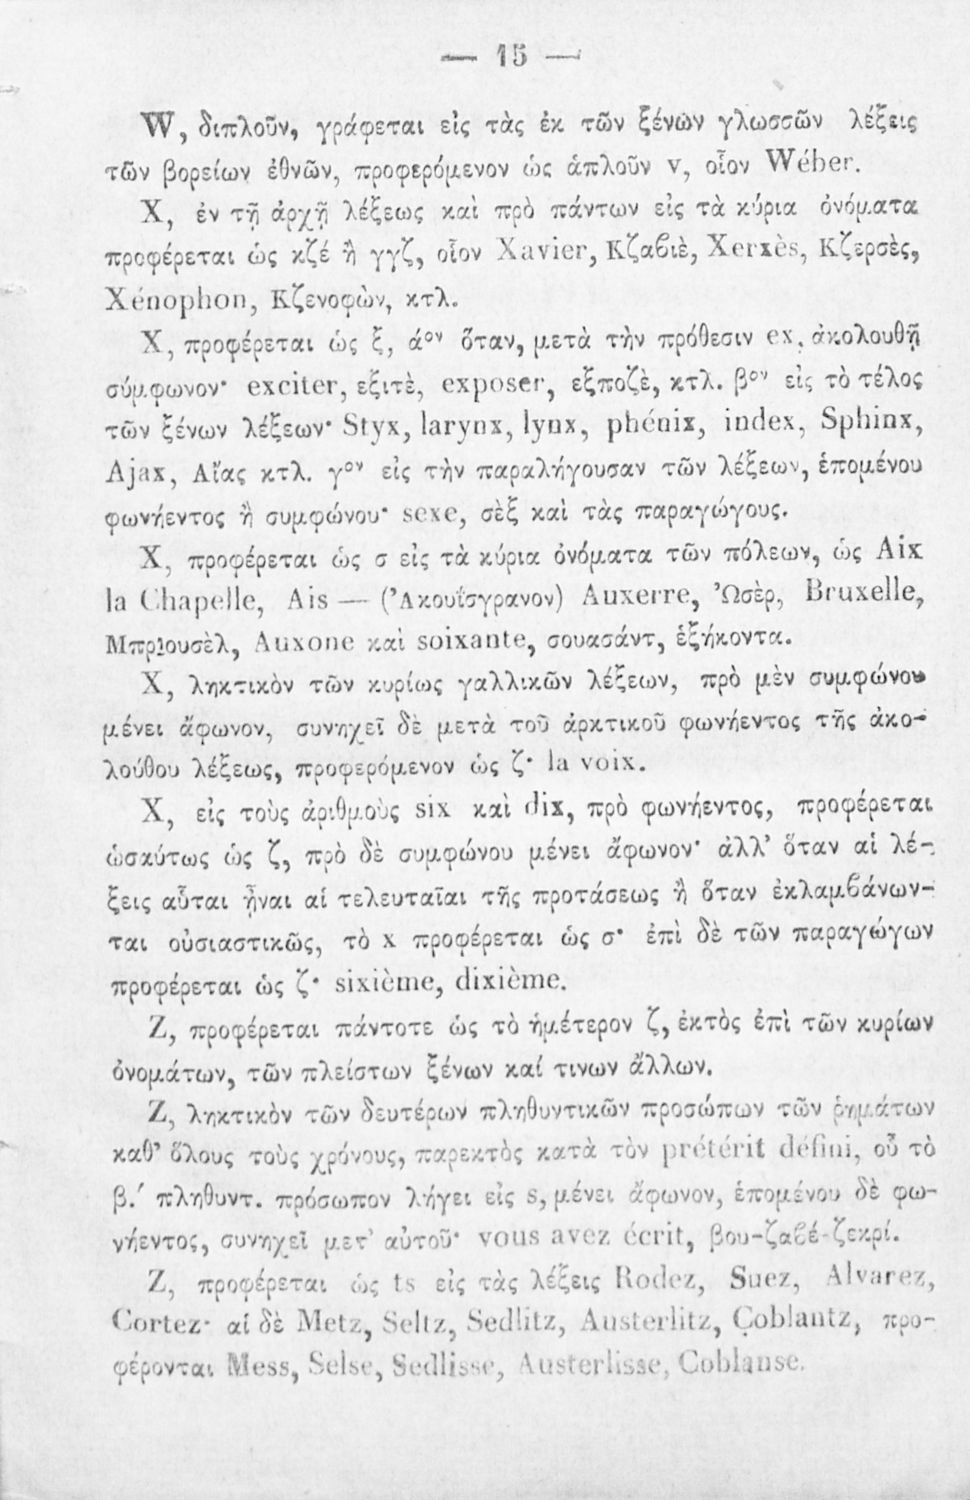 — 15 —
W, διπλοῦν, γράφεται εἰς τὰς ἐκ τῶν ξένων γλωσσῶν λέξεις
τῶν βορείων ἐθνῶν, προφερόμενον ὡς ἁπλοῦν v, οἷον Wéber.
X, ἐν τῇ ἀρχῇ λέξεως καὶ πρὸ πάντων εἰς τὰ κύρια ὀνόματα
προφέρεται ὡς κζέ ἢ γγζ, οἷον Xavier, Κζαβιὲ, Xerxès, Κζερσὲς,
Xénophon, Κζενοφὼν, κτλ.
X, προφέρεται ὡς ξ, άον ὅταν, μετὰ τὴν πρόθεσιν ex, ἀκολουθῇ
σύμφωνον· exciter, εξιτὲ, exposer, εξποζὲ, κτλ. βον εἰς τὸ τέλος
τῶν ξένων λέξεων· Styx, larynx, lynx, phénix, index, Sphinx,
Ajax, Αἴας κτλ. γον εἰς τὴν παραλήγουσαν τῶν λέξεων, ἑπομένου
φωνήεντος ἢ συμφώνου· sexe, σὲξ καὶ τὰς παραγώγους.
X, προφέρεται ὡς σ εἰς τὰ κύρια ὀνόματα τῶν πόλεων, ὡς Aix
la Chapelle, Ais — (Ἀκουΐσγρανον) Auxerre, Ὠσὲρ, Bruxelle,
Μπριουσὲλ, Auxone καὶ soixante, σουασάντ, ἑξήκοντα.
X, ληκτικὸν τῶν κυρίως γαλλικῶν λέξεων, πρὸ μὲν συμφώνου
μένει ἄφωνον, συνηχεῖ δὲ μετὰ τοῦ ἀρκτικοῦ φωνήεντος τῆς ἀκο-
λούθου λέξεως, προφερόμενον ὡς ζ· la voix.
X, εἰς τοὺς ἀριθμοὺς six καὶ dix, πρὸ φωνήεντος, προφέρεται
ὡσαύτως ὡς ζ, πρὸ δὲ συμφώνου μένει ἄφωνον· ἀλλ’ ὅταν αἱ λέ-
ξεις αὗται ἦναι αἱ τελευταῖαι τῆς προτάσεως ἢ ὅταν ἐκλαμβάνων-
ται οὐσιαστικῶς, τὸ x προφέρεται ὡς σ· ἐπὶ δὲ τῶν παραγώγων
προφέρεται ὡς ζ· sixième, dixième.
Z, προφέρεται πάντοτε ὡς τὸ ἡμέτερον ζ, ἐκτὸς ἐπὶ τῶν κυρίων
ὀνομάτων, τῶν πλείστων ξένων καί τινων ἄλλων.
Z, ληκτικὸν τῶν δευτέρων πληθυντικῶν προσώπων τῶν ῥημάτων
καθ’ ὅλους τοὺς χρόνους, παρεκτὸς κατὰ τὸν prétérit défini, οὗ τὸ
β.′ πληθυντ. πρόσωπον λήγει εἰς s, μένει ἄφωνον, ἑπομένου δὲ φω-
νήεντος, συνηχεῖ μετ’ αὐτοῦ· vous avez écrit, βου-ζαβέ-ζεκρί.
Z, προφέρεται ὡς ts εἰς τὰς λέξεις Rodez, Suez, Alvarez,
Cortez· αἱ δὲ Metz, Seltz, Sedlitz, Austerlitz, Coblantz, προ-
φέρονται Mess, Selse, Sedlisse, Austerlisse, Coblanse.